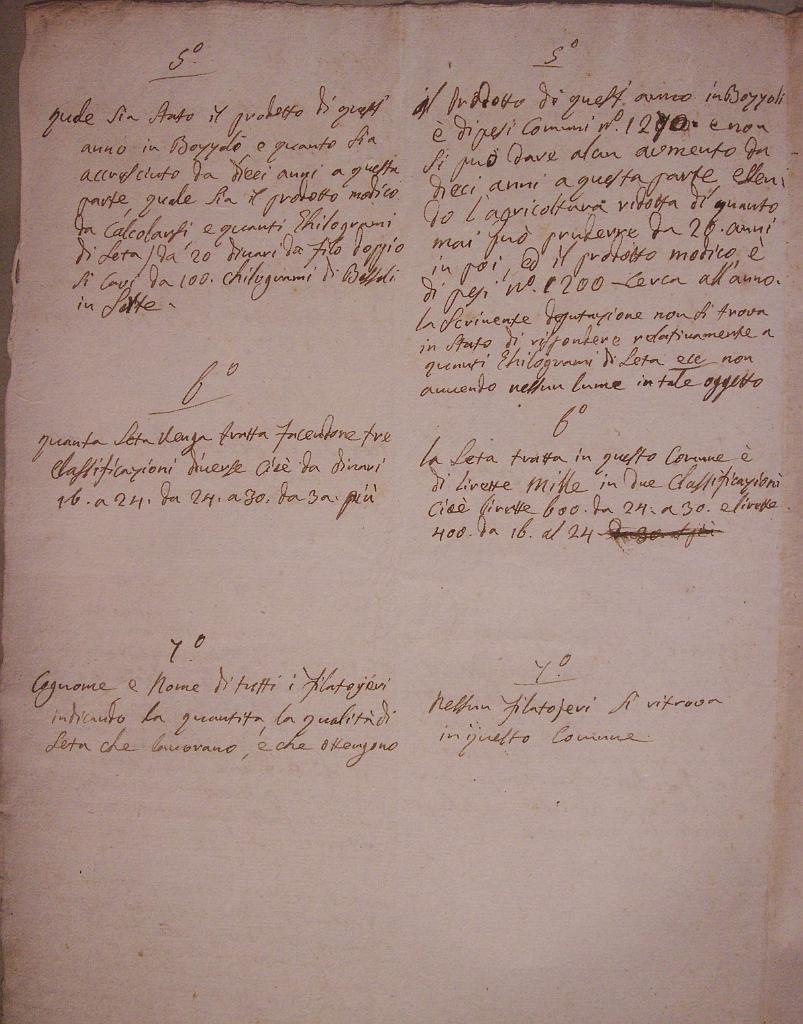 5º
quale sia stato il prodotto di quest
anno in Bozzoli e quanto sia
accresciuto da dieci anni a questa
parte quale sia il prodotto modico
da Calcolarsi e quanti Chilogrami
di Seta da 20 dinari da filo doppio
si cavi da 100. chilogrami di Bozzoli
in Sette.
6º
quanta Seta venga tratta facendone tre
Classificazioni diverse cioè da dinari
16. a 24. da 24. a 30. da 30. più
7º
Cognome e Nome di tutti i filatojeri
indicando la quantità, la qualità di
Seta che lavorano, e che ottengono
5º
il Prodotto di quest anno in Bozzoli
è di pesi Comuni nº. 1270. e non
si può dare alcun aumento da
dieci anni a questa parte essen:
do l'agricoltura ridotta di quanto
mai può prudersse da 20. anni
in poi, ed il prodotto modico, è
di pesi nº. 1200 Cerca all'anno.
la Scrivente deputazione non si trova
in Stato di rispondere relativamente a
quanti Chilogrami di Seta ecc non
avvendo nessun lume in tale oggetto
6º
la Seta tratta in questo Comune è
di livrette Mille in due Classificazioni
Cioè livrette 600. da 24. a 30. e livrette
400. da 16. al 24 da 30. a più
7º
Nessun filatojeri si ritrova
in questo Comune